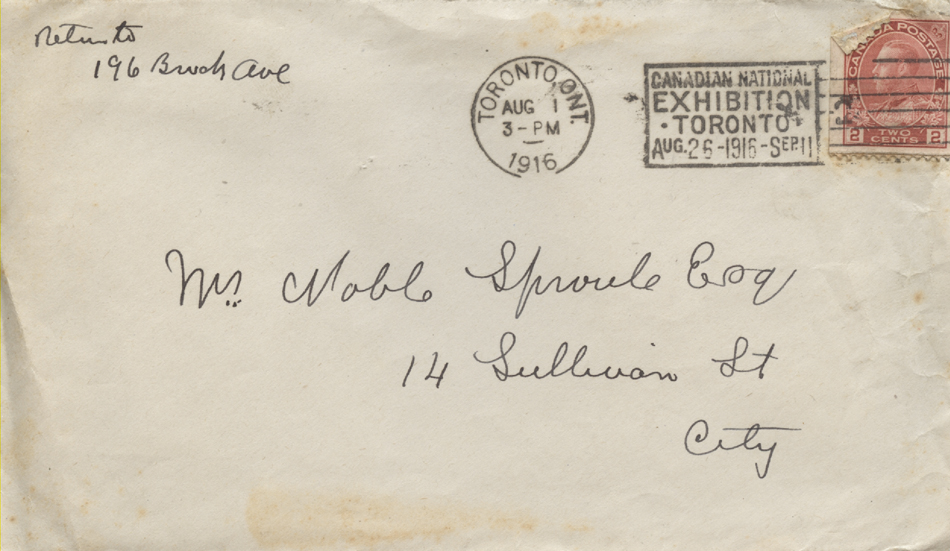 Return to
196 Brock Ave
TORONTO, ONT.
AUG 1
3-PM
1916
CANADIAN NATIONAL
EXHIBITION
· TORONTO ·
AUG. 26-1916-SEP. 11
CANADA POSTAGE
2 TWO CENTS 2
Mr. Noble Sproule Esq
14 Sullivan St
City